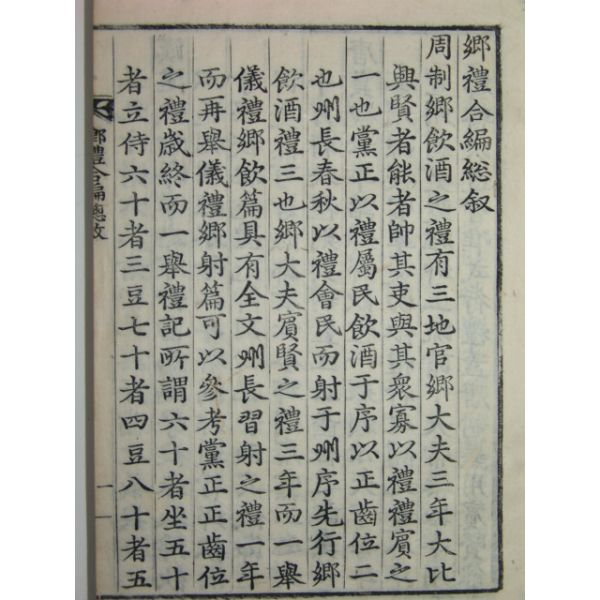 鄉禮合編総叙
周制鄉飮酒之禮有三地官鄉大夫三年大比
興賢者能者帥其吏與其衆寡以禮禮賓之
一也黨正以禮屬民飮酒于序以正齒位二
也州長春秋以禮會民而射于州序先行鄉
飮酒禮三也鄉大夫賓賢之禮三年而一舉
儀禮鄉飮篇具有全文州長習射之禮一年
而再舉儀禮鄉射篇可以參考黨正正齒位
之禮歲終而一舉禮記所謂六十者坐五十
者立侍六十者三豆七十者四豆八十者五
鄉禮合編總敘
一